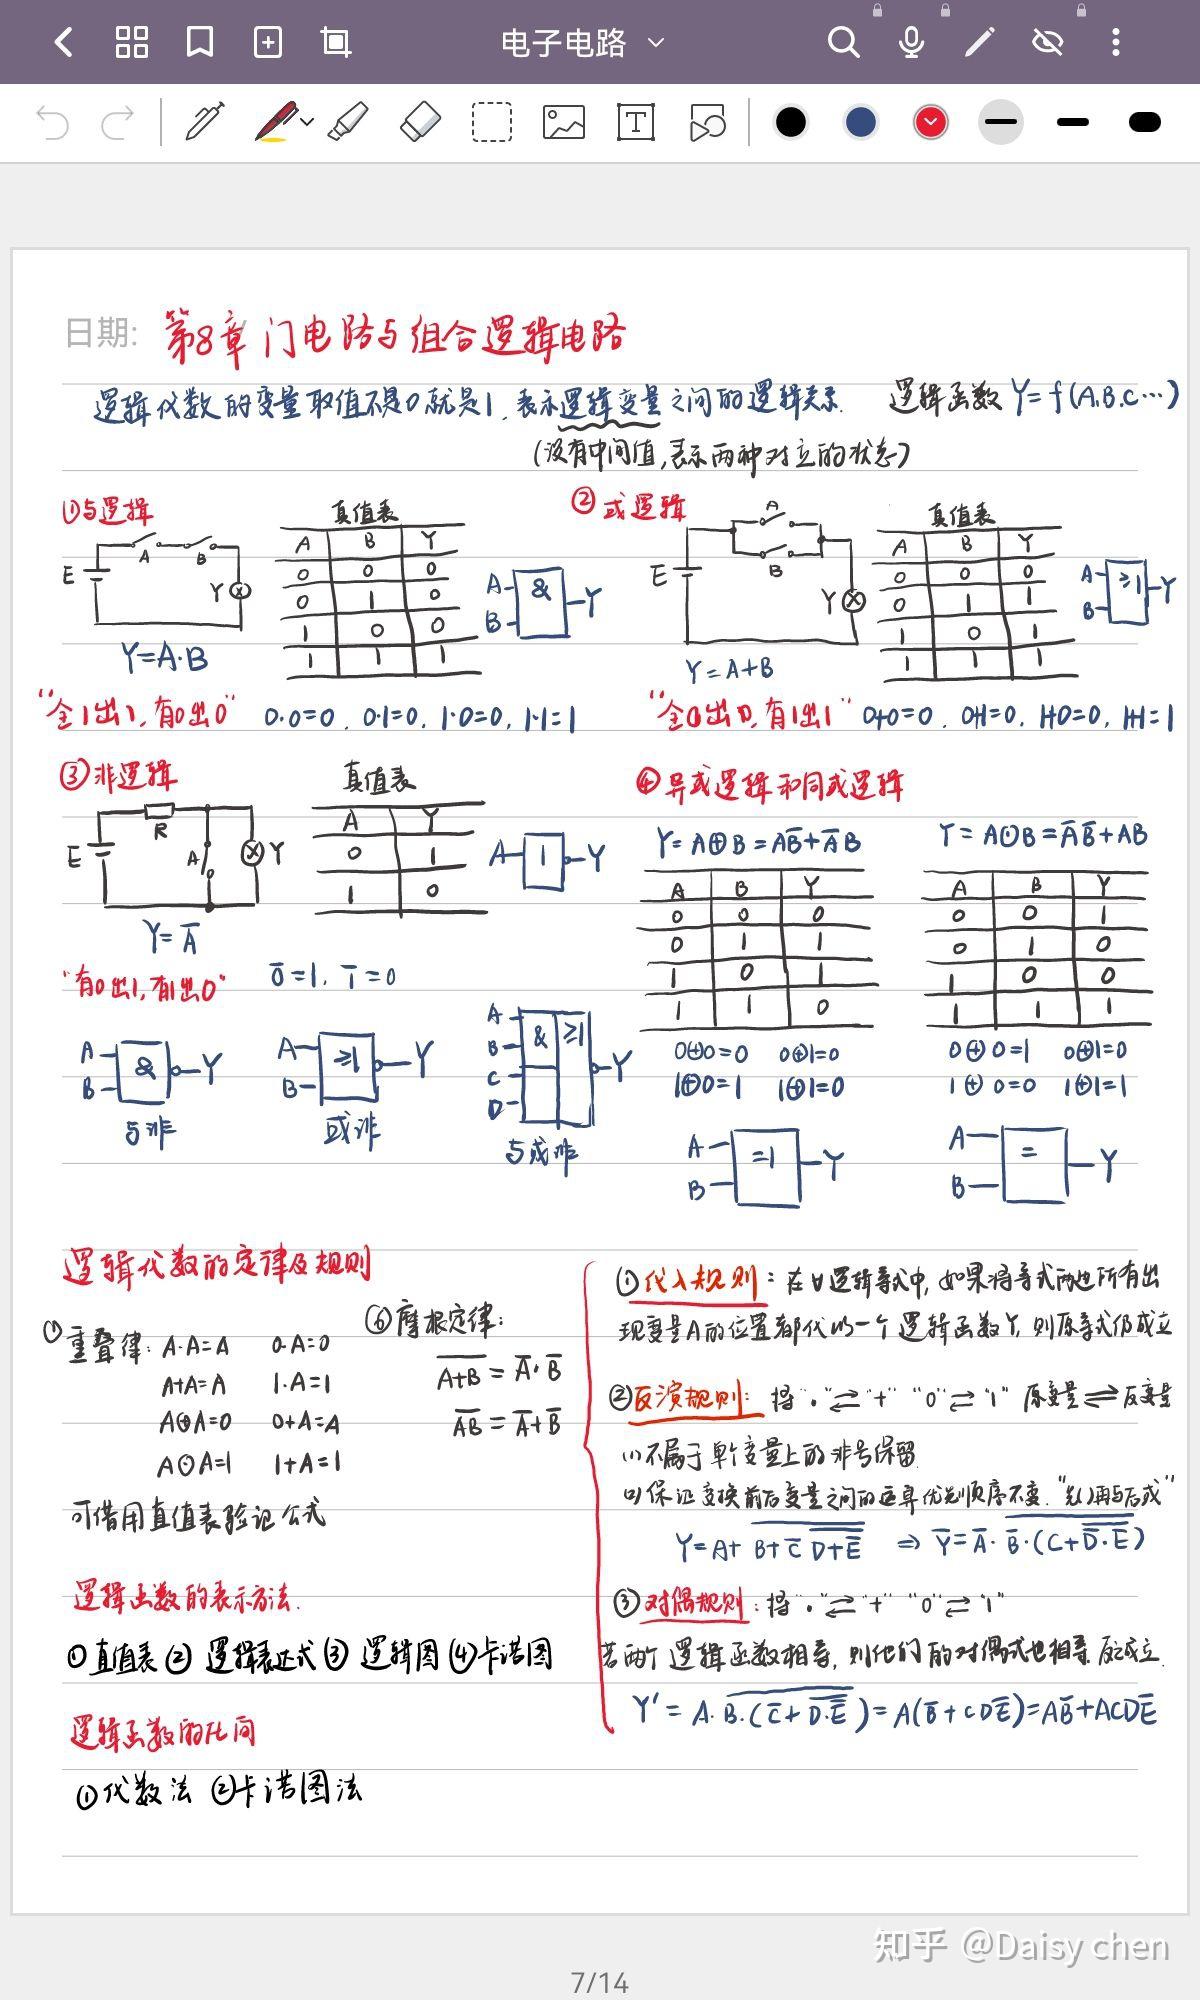 电子电路
日期: 第8章 门电路与组合逻辑电路
逻辑代数的变量取值不是0就是1,表示逻辑变量之间的逻辑关系. 逻辑函数 Y=f(A.B.C…)
(没有中间值,表示两种对立的状态)
①与逻辑
E A B Y
Y=A·B
真值表
A B Y
0 0 0
0 1 0
1 0 0
1 1 1
A B & Y
"全1出1,有0出0" 0·0=0, 0·1=0, 1·0=0, 1·1=1
②或逻辑
E A B Y
Y=A+B
真值表
A B Y
0 0 0
0 1 1
1 0 1
1 1 1
A B ≥1 Y
"全0出0,有1出1" 0+0=0, 0+1=0, 1+0=0, 1+1=1
③非逻辑
E R A Y
Y=A̅
真值表
A Y
0 1
1 0
A 1 Y
"有0出1,有1出0" 0̅=1, 1̅=0
A B & Y
与非
A B ≥1 Y
或非
A B C D & ≥1 Y
与或非
④异或逻辑和同或逻辑
Y=A⊕B=AB̅+A̅B
A B Y
0 0 0
0 1 1
1 0 1
1 1 0
0⊕0=0 0⊕1=0
1⊕0=1 1⊕1=0
A B =1 Y
Y=A⊙B=A̅B̅+AB
A B Y
0 0 1
0 1 0
1 0 0
1 1 1
0⊕0=1 0⊕1=0
1⊕0=0 1⊕1=1
A B = Y
逻辑代数的定律及规则
①重叠律: A·A=A 0·A=0
A+A=A 1·A=1
A⊕A=0 0+A=A
A⊙A=1 1+A=1
可借用真值表验记公式
⑥摩根定律:
\overline{A+B}=A̅·B̅
\overline{AB}=A̅+B̅
逻辑函数的表示方法.
①真值表②逻辑表达式③逻辑图④卡诺图
逻辑函数的化简
①代数法 ②卡诺图法
①代入规则:在∀逻辑等式中,如果将等式两边所有出
现变量A的位置都代以一个逻辑函数Y,则原等式仍成立
②反演规则:将"·"⇄"+" "0"⇄"1" 原变量⇌反变量
(1)不属于单个变量上的非号保留.
(2)保证变换前后变量之间的运算优先顺序不变."先()再与后或"
Y=A+\overline{B+C̅\overline{D+\overline{E}}} ⇒ Y̅=A̅·\overline{B̅·(C+\overline{D̅·E})}
③对偶规则:将"·"⇄"+" "0"⇄"1"
若两个逻辑函数相等,则他们的对偶式也相等,反之成立.
Y'=A·\overline{B·(C̅+\overline{D·E̅})}=A(B̅+CDE̅)=AB̅+ACDE̅
知乎 @Daisy chen
7/14